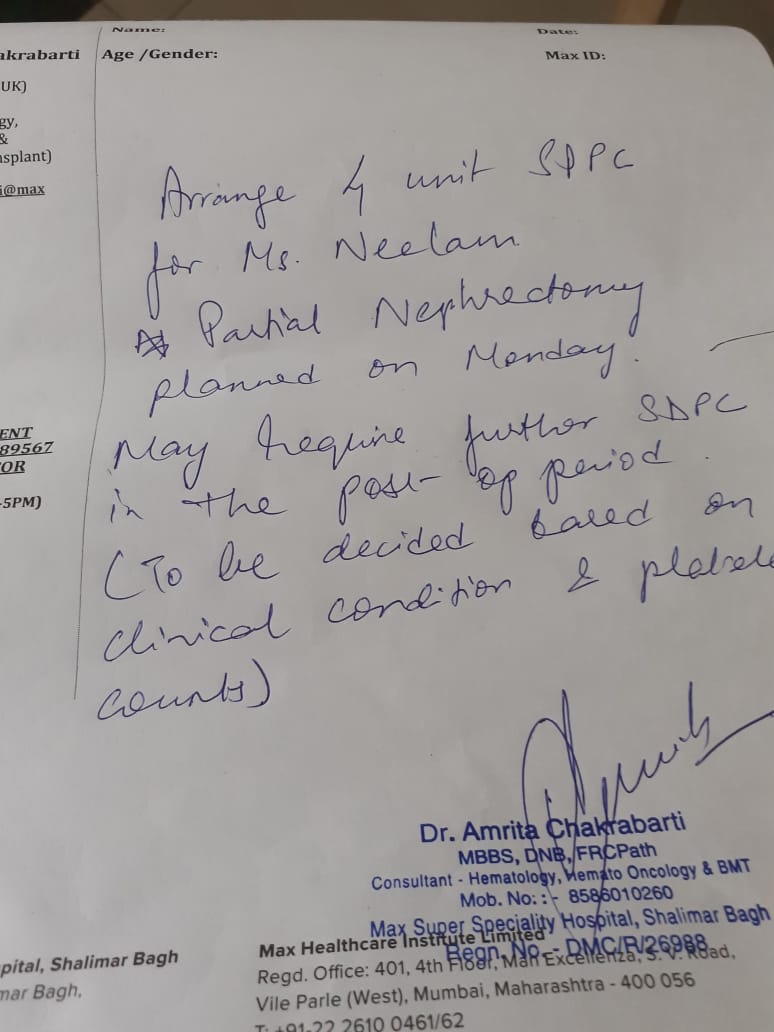 Name:
Date:
akrabarti
Age /Gender:
Max ID:
UK)
gy,
&
nsplant)
i@max
Arrange 4 unit SDPC
for Ms. Neelam
Partial Nephrectomy
planned on Monday.
May require further SDPC
in the post-op period.
(To be decided based on
clinical condition & platele
counts)
ENT
89567
OR
-5PM)
Dr. Amrita Chakrabarti
MBBS, DNB, FRCPath
Consultant - Hematology, Hemato Oncology & BMT
Mob. No: :- 8586010260
Max Super Speciality Hospital, Shalimar Bagh
Regn. No.- DMC/R/26988
pital, Shalimar Bagh
mar Bagh,
Max Healthcare Institute Limited
Regd. Office: 401, 4th Floor, Man Excellenza, S. V. Road,
Vile Parle (West), Mumbai, Maharashtra - 400 056
T: +91-22 2610 0461/62